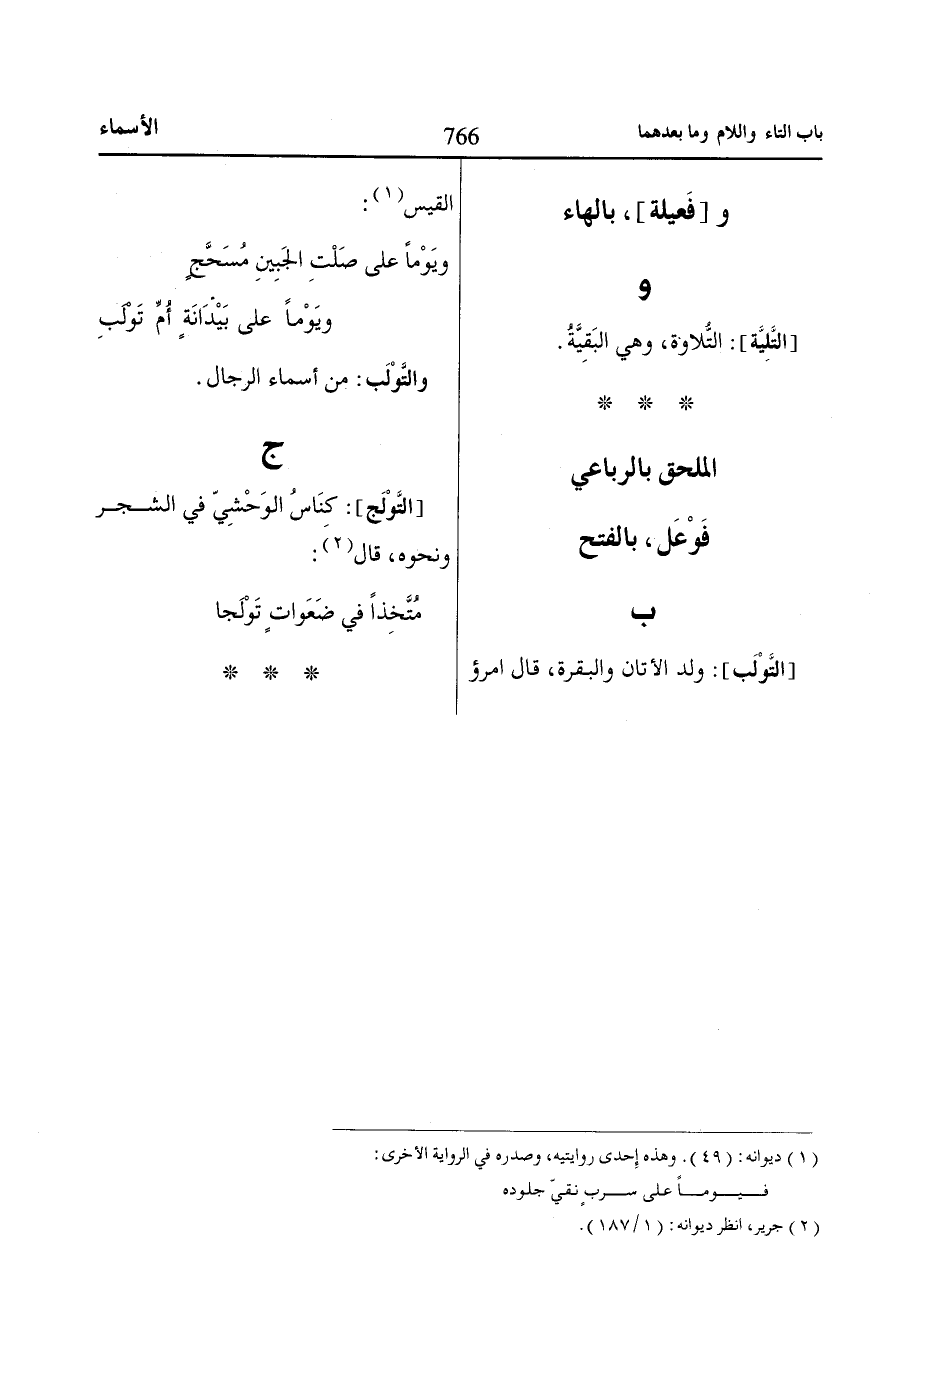 باب التاء واللام وما بعدهما
766
الأسماء
و [فَعيلة]، بالهاء
و
[التَّلِيَّة]: التُّلاوة، وهي البَقِيَّةُ.
* * *
الملحق بالرباعي
فَوْعَل، بالفتح
ب
[التَّوْلَب]: ولد الأتان والبقرة، قال امرؤ
القيس(١):
ويَوْماً على صَلْتِ الجَبِينِ مُسَحَّجٍ
ويَوْماً على بَيْدَانَةٍ أُمِّ تَوْلَبِ
والتَّوْلَب: من أسماء الرجال.
ج
[التَّوْلَج]: كنَاسُ الوَحْشِيّ في الشجر
ونحوه، قال(٢):
مُتَّخِذاً في ضَعَواتٍ تَوْلَجا
* * *
(١) ديوانه: (٤٩). وهذه إحدى روايتيه، وصدره في الرواية الأخرى:
فيوماً على سربٍ نقيّ جلوده
(٢) جرير، انظر ديوانه: (١/١٨٧).